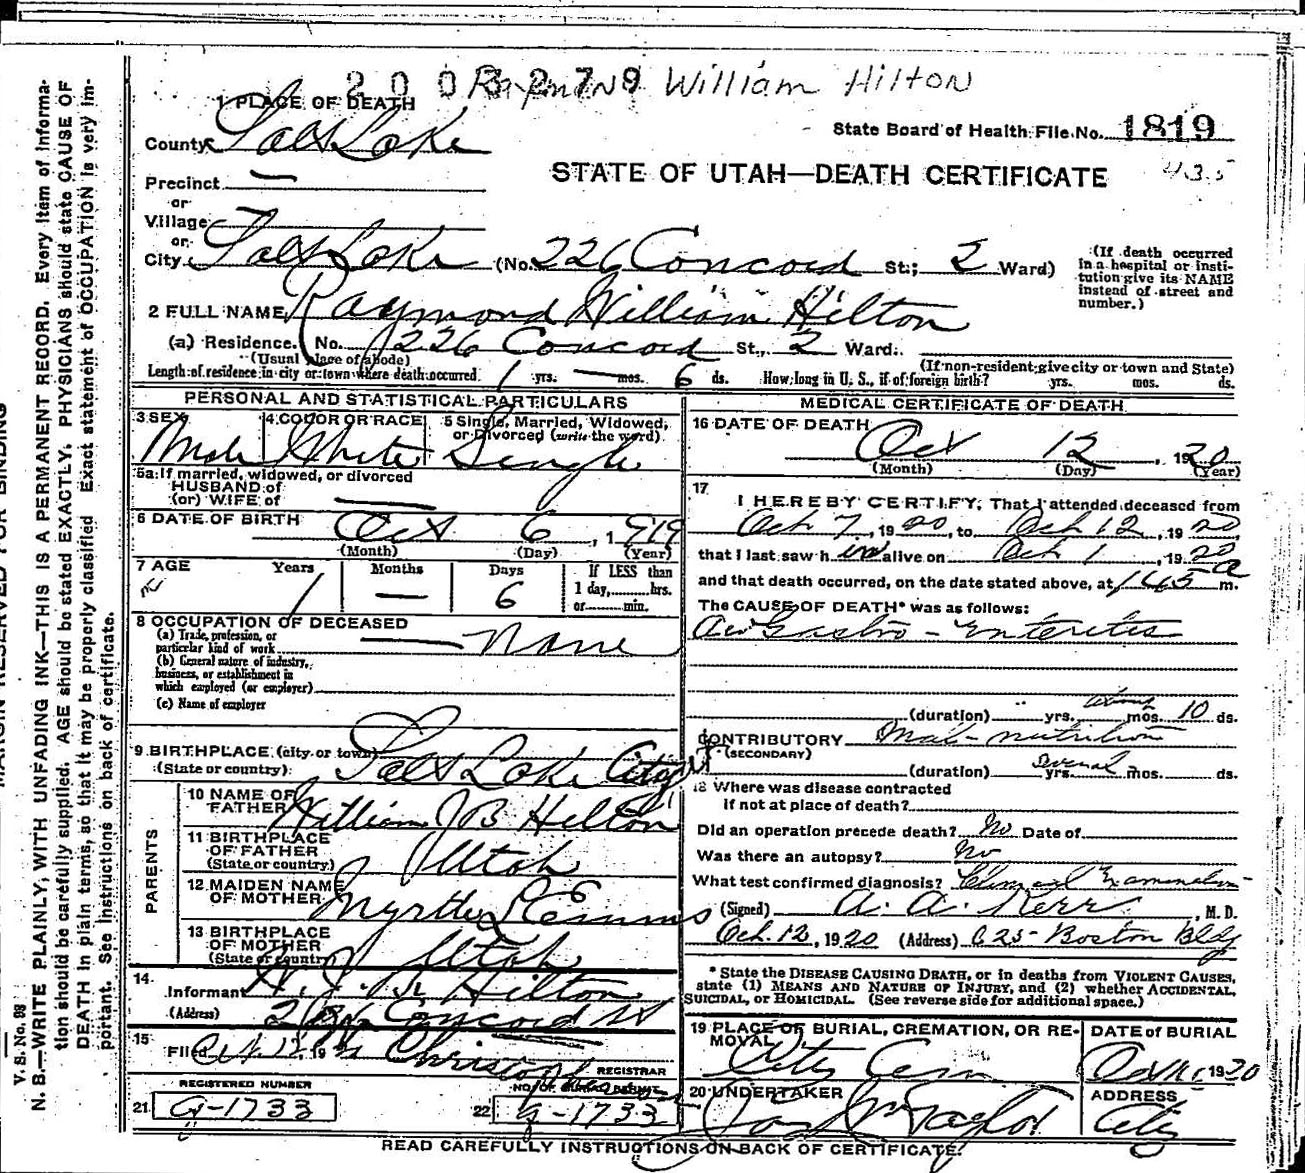 2003279 Raymond William Hilton
1 PLACE OF DEATH
County Salt Lake
State Board of Health File No. 1819
STATE OF UTAH—DEATH CERTIFICATE 435
Precinct —
or
Village
or
City Salt Lake (No. 226 Concord St.; 2 Ward)
(If death occurred in a hospital or institution give its NAME instead of street and number.)
2 FULL NAME Raymond William Hilton
(a) Residence. No. 226 Concord St., 2 Ward.
(Usual place of abode) (If non-resident give city or town and State)
Length of residence in city or town where death occurred. 1 yrs. — mos. 6 ds. How long in U. S., if of foreign birth? yrs. mos. ds.
PERSONAL AND STATISTICAL PARTICULARS
3 SEX 4 COLOR OR RACE 5 Single, Married, Widowed, or Divorced (write the word)
Male White Single
5a If married, widowed, or divorced
HUSBAND of
(or) WIFE of —
6 DATE OF BIRTH Oct 6, 1919
(Month) (Day) (Year)
7 AGE Years Months Days If LESS than
1 — 6 1 day, hrs.
or min.
8 OCCUPATION OF DECEASED
(a) Trade, profession, or
particular kind of work — none
(b) General nature of industry,
business, or establishment in
which employed (or employer)
(c) Name of employer
9 BIRTHPLACE (city or town)
(State or country) Salt Lake City
PARENTS
10 NAME OF
FATHER William J B Hilton
11 BIRTHPLACE
OF FATHER
(State or country) Utah
12 MAIDEN NAME
OF MOTHER Myrtle
13 BIRTHPLACE
OF MOTHER
(State or country) Utah
14
Informant Hilton
(Address) 226 Concord St
15
Filed Oct. 12, 19 Christopherson
REGISTRAR
REGISTERED NUMBER NO. OF BURIAL PERMIT
21 G-1733 22 G-1733
MEDICAL CERTIFICATE OF DEATH
16 DATE OF DEATH
Oct 12, 1920
(Month) (Day) (Year)
17
I HEREBY CERTIFY, That I attended deceased from
Oct 7, 1920, to Oct 12, 1920,
that I last saw him alive on Oct 1, 1920
and that death occurred, on the date stated above, at 1:45 a m.
The CAUSE OF DEATH* was as follows:
Gastro-Enteritis
(duration) yrs. about mos. 10 ds.
CONTRIBUTORY Mal-nutrition
(SECONDARY)
(duration) yrs. several mos. ds.
18 Where was disease contracted
if not at place of death?
Did an operation precede death? No Date of
Was there an autopsy? No
What test confirmed diagnosis? Clinical Examination
(Signed) A. A. Kerr, M. D.
Oct. 12, 1920 (Address) 625 Boston Bldg
* State the DISEASE CAUSING DEATH, or in deaths from VIOLENT CAUSES,
state (1) MEANS AND NATURE OF INJURY, and (2) whether ACCIDENTAL,
SUICIDAL, or HOMICIDAL. (See reverse side for additional space.)
19 PLACE OF BURIAL, CREMATION, OR RE-
MOVAL DATE of BURIAL
City Cem 1920
20 UNDERTAKER ADDRESS
Taylor City
READ CAREFULLY INSTRUCTIONS ON BACK OF CERTIFICATE.
V. S. No. 98
N. B.—WRITE PLAINLY, WITH UNFADING INK—THIS IS A PERMANENT RECORD. Every item of information should be carefully supplied. AGE should be stated EXACTLY. PHYSICIANS should state CAUSE OF DEATH in plain terms, so that it may be properly classified. Exact statement of OCCUPATION is very important. See instructions on back of certificate.
MARGIN RESERVED FOR BINDING